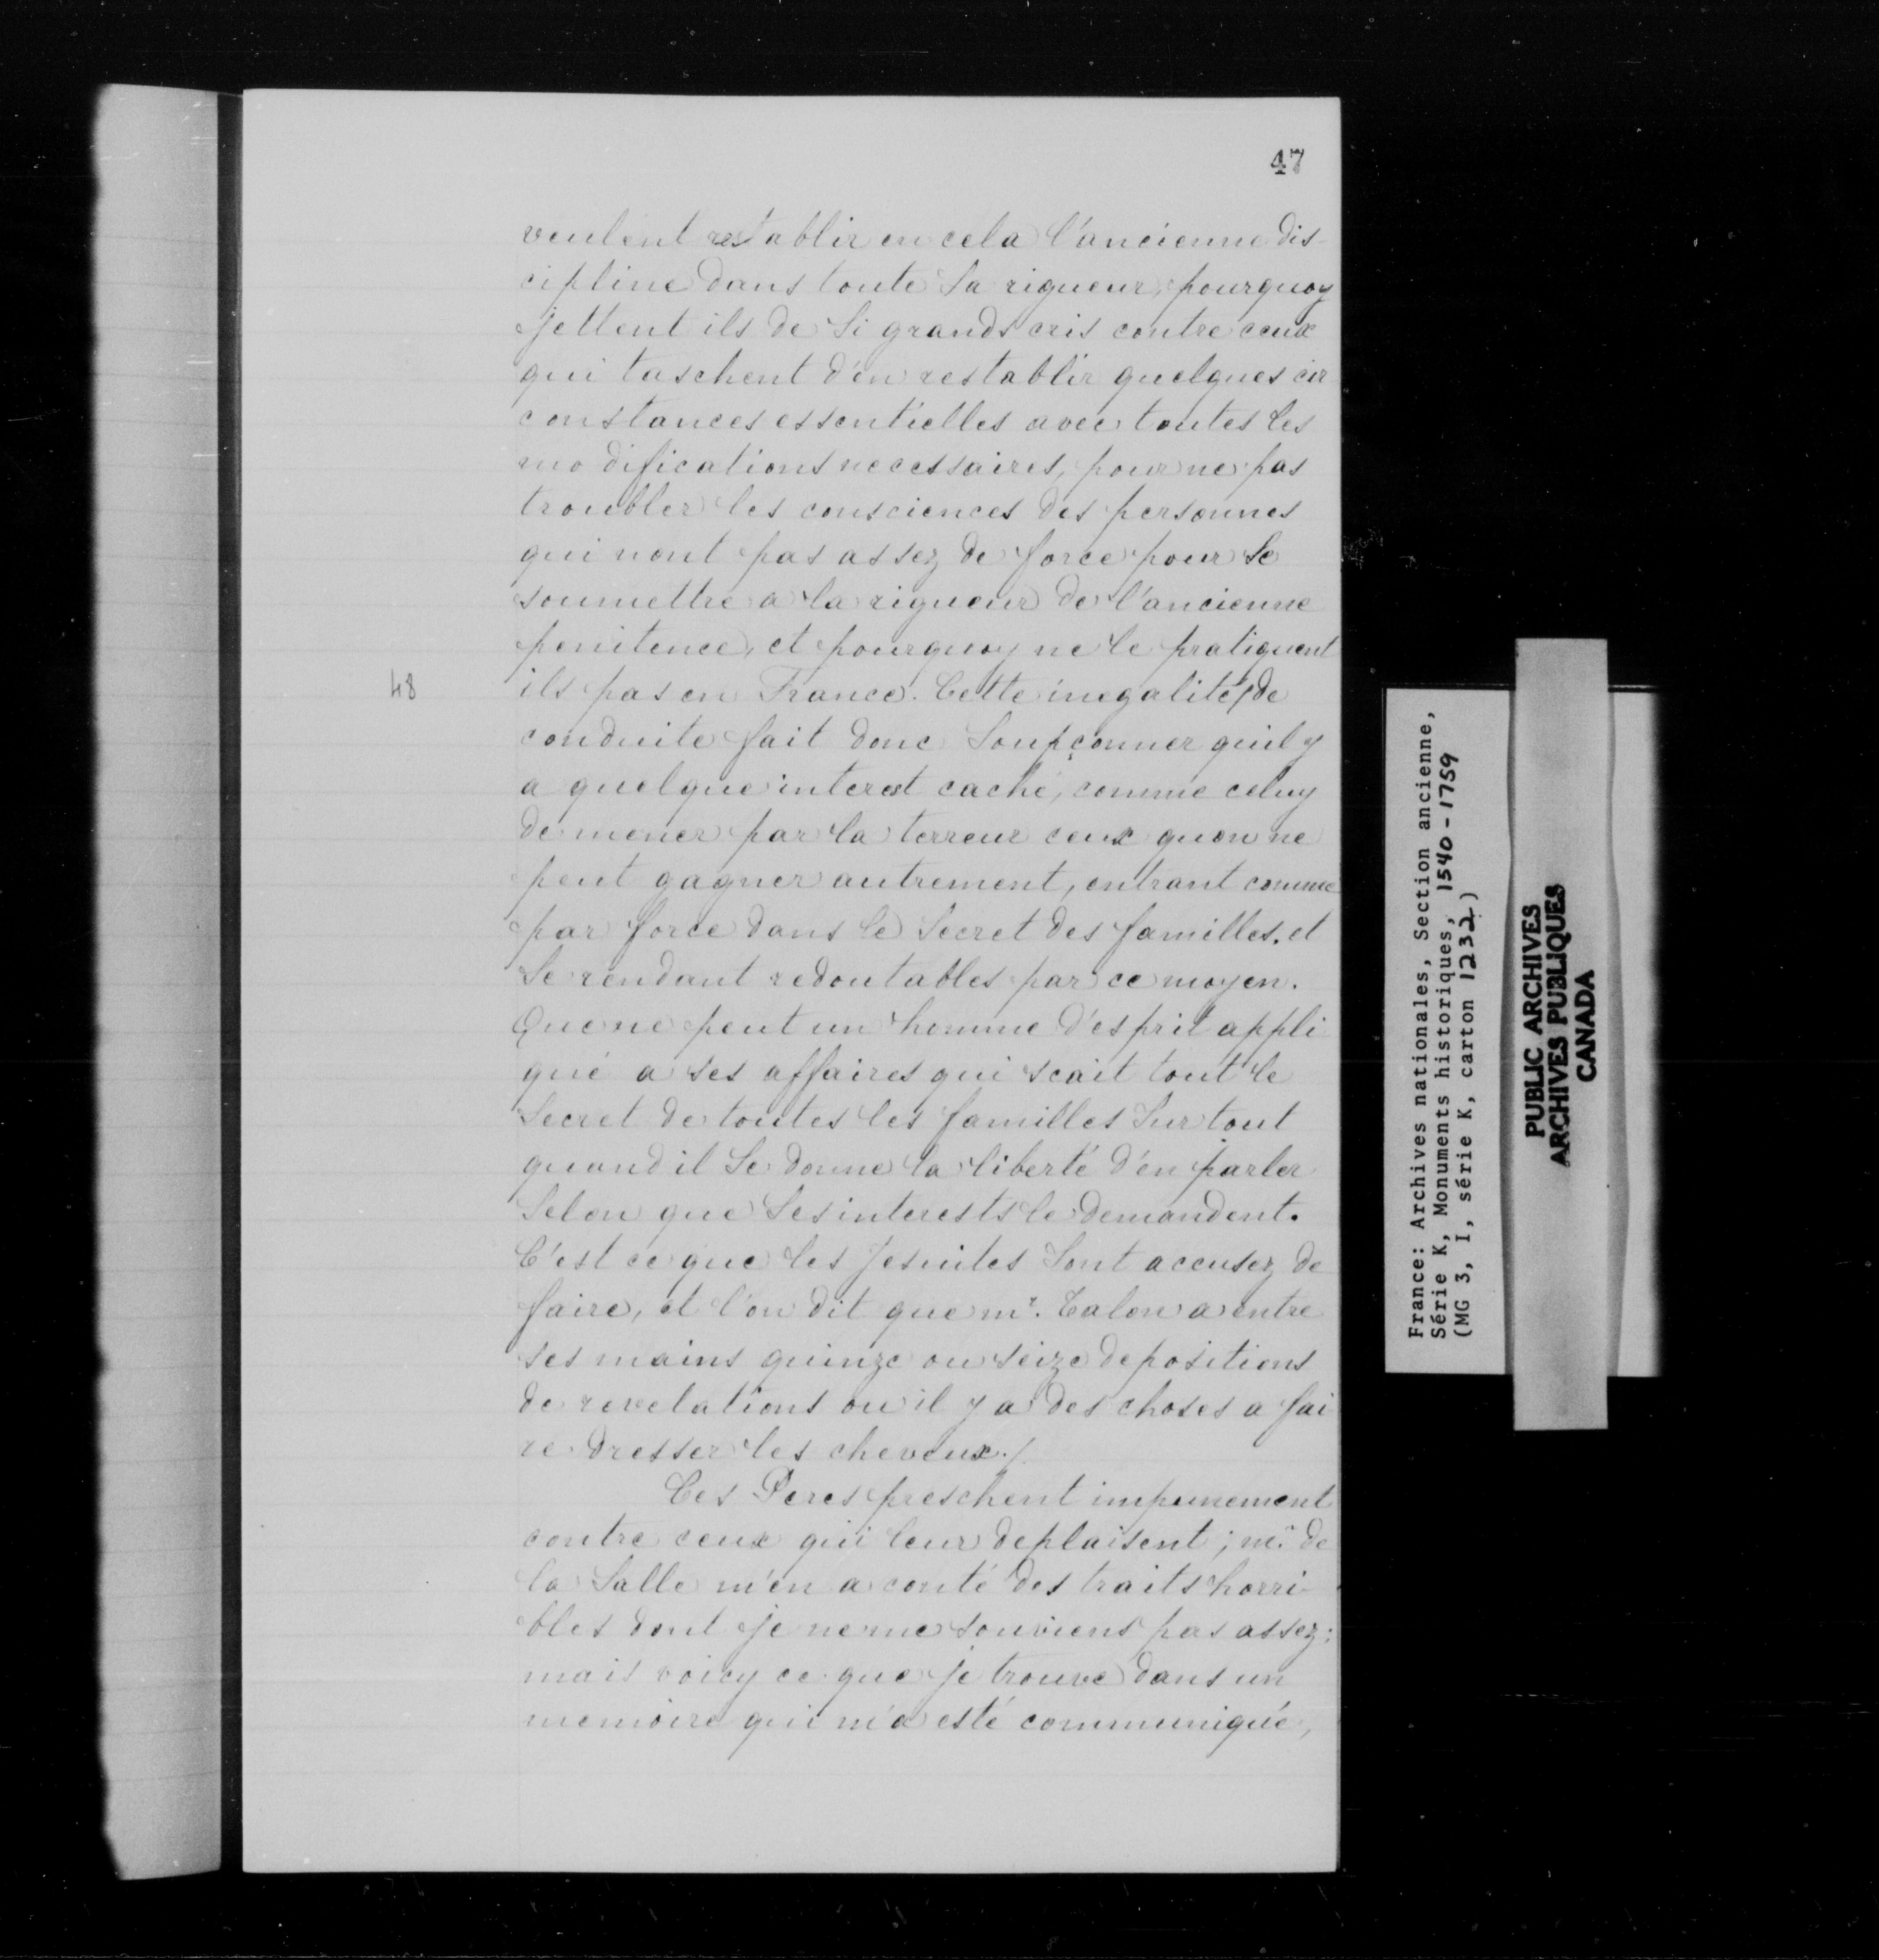 47
veulent restablir en cela l'ancienne dis-
cipline dans toute sa rigueur, pourquoy
jettent ils de si grands cris contre ceux
qui taschent d'en restablir quelques cir
constances essentielles avec toutes les
modifications necessaires, pour ne pas
troubler les consciences des personnes
qui nont pas assez de force pour se
soumettre a la rigueur de l'ancienne
penitence, et pourquoy ne le pratiquent
48 ils pas en France. Cette inegalité/de
conduite fait donc soupçonner quil y
a quelque interest caché, comme celuy
de mener par la terreur ceux quon ne
peut gagner autrement, entrant comme
par force dans le secret des familles. et
se rendant redoutables par ce moyen.
Que ne peut un homme d'esprit appli
qué a ses affaires qui scait tout le
secret de toutes les familles sur tout
quand il se donne la liberté d'en parler
selon que ses interests le demandent.
C'est ce que les Jesuites sont accusez de
faire, et l'on dit que mr. Talon a entre
ses mains quinze ou seize depositions
de revelations ou il y a des choses a fai
re dresser les cheveux./.
Ces Peres preschent impunement
contre ceux qui leur deplaisent; mr. de
la Salle m'en a conté des traits horri-
bles dont je ne me souviens pas assez;
mais voicy ce que je trouve dans un
memoire qui m'a esté communiqué,
France: Archives nationales, Section ancienne,
Série K, Monuments historiques, 1540-1759
(MG 3, I, série K, carton 1232)
PUBLIC ARCHIVES
ARCHIVES PUBLIQUES
CANADA